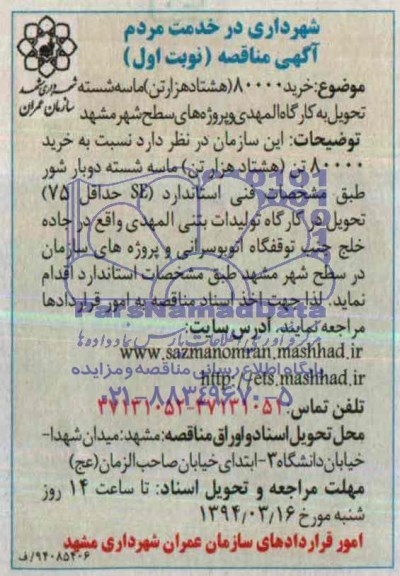 شهرداری در خدمت مردم
آگهی مناقصه (نوبت اول)
شهرداری مشهد
سازمان عمران
موضوع: خرید ۸۰۰۰۰ (هشتاد هزار تن) ماسه شسته
تحویل به کارگاه المهدی و پروژه های سطح شهر مشهد
توضیحات: این سازمان در نظر دارد نسبت به خرید
۸۰۰۰۰ تن (هشتاد هزار تن) ماسه شسته دوبار شور
طبق مشخصات فنی استاندارد (SE حداقل ۷۵)
تحویل در کارگاه تولیدات بتنی المهدی واقع در جاده
خلج جنب توقفگاه اتوبوسرانی و پروژه های سازمان
در سطح شهر مشهد طبق مشخصات استاندارد اقدام
نماید. لذا جهت اخذ اسناد مناقصه به امور قراردادها
ParsNamadData
مراجعه نمایند. آدرس سایت:
www.sazmanomran.mashhad.ir
پایگاه اطلاع رسانی مناقصه و مزایده
http://ets.mashhad.ir
۰۲۱-۸۸۳۴۹۶۷۰-۵
تلفن تماس: ۳۷۱۳۱۰۵۱-۳۷۱۳۱۰۵۲
محل تحویل اسناد و اوراق مناقصه: مشهد: میدان شهدا-
خیابان دانشگاه ۳- ابتدای خیابان صاحب الزمان (عج)
مهلت مراجعه و تحویل اسناد: تا ساعت ۱۴ روز
شنبه مورخ ۱۳۹۴/۰۳/۱۶
امور قراردادهای سازمان عمران شهرداری مشهد
۹۴۰۸۵۴۰۶/ف